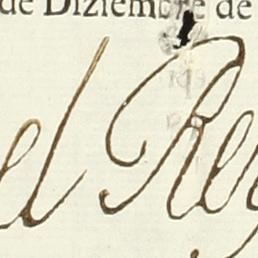 de Diziembre de
el Rey